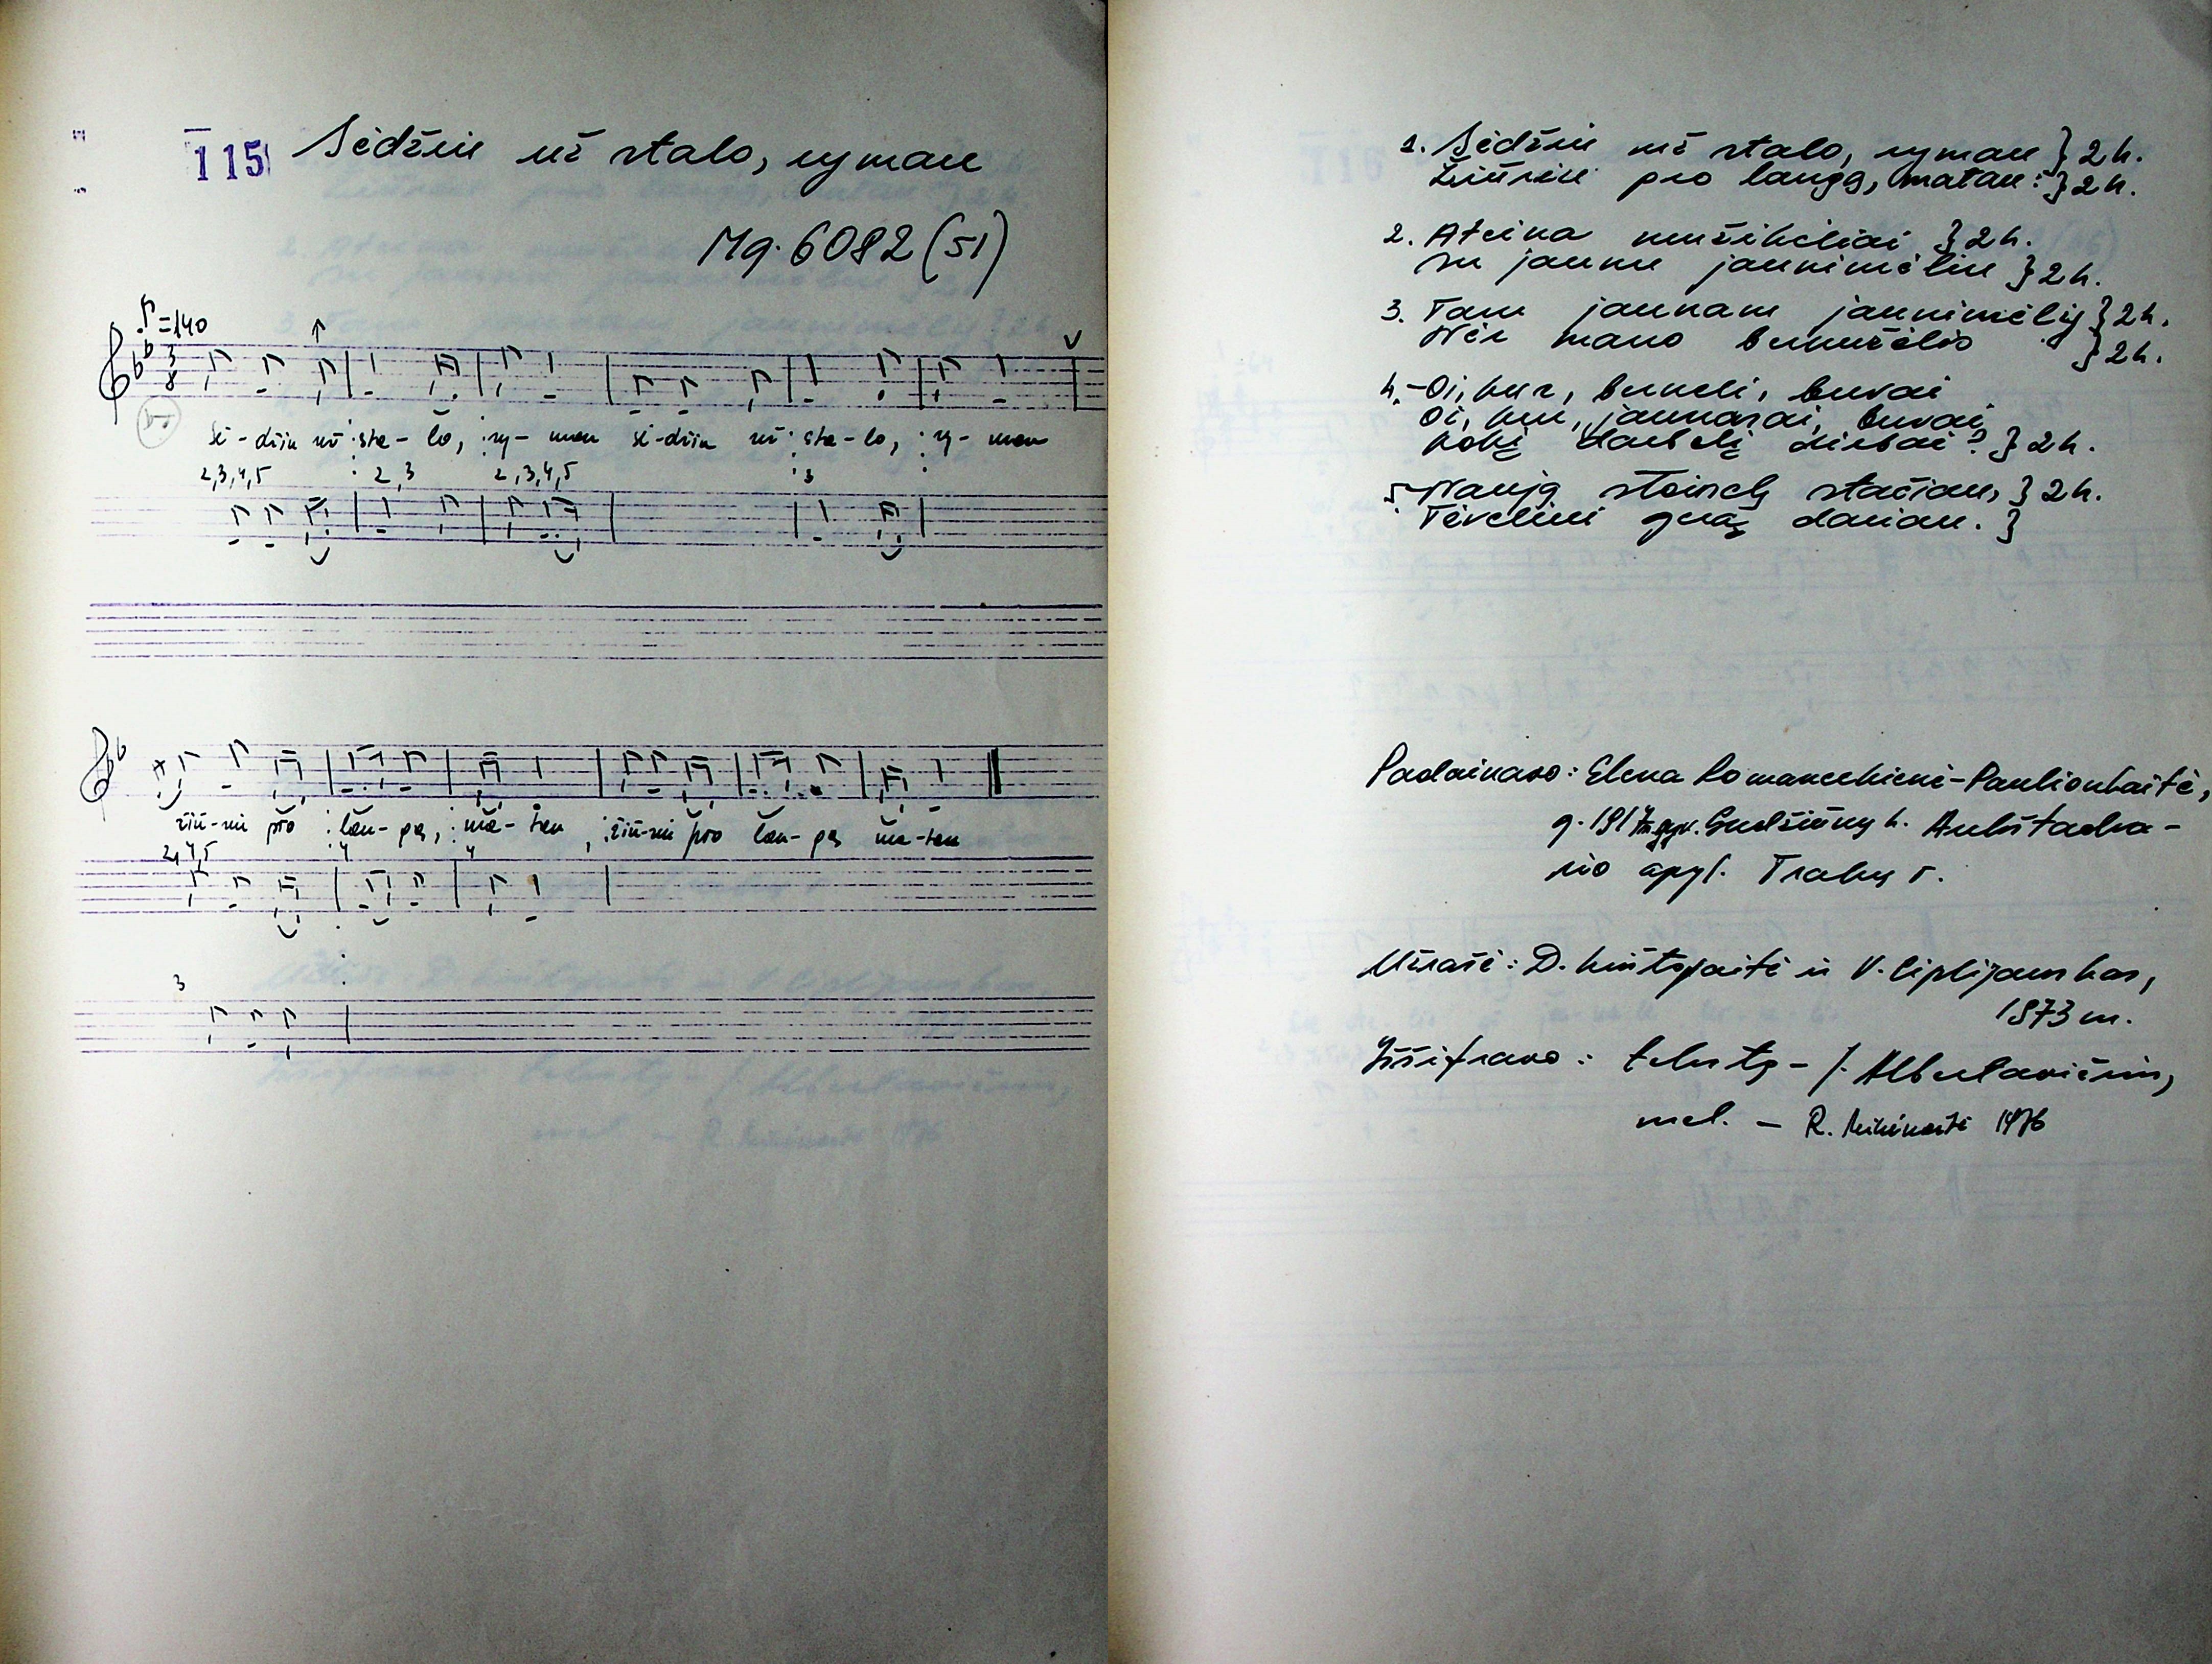 115 Sėdžiu už stalo, rymau
Mg. 6082 (51)
♪=140
3
8
Sė-džiu už sta-lo, ry-mau sė-džiu už sta-lo, ry-mau
2,3,4,5 2,3 2,3,4,5 3
žiū-riu pro lan-gą, ma-tau, žiū-riu pro lan-gą ma-tau
2,4,5 4 4
3
1. Sėdžiu už stalo, rymau } 2 k.
Žiūriu pro langą, matau: } 2 k.
2. Ateina mužikėliai } 2 k.
su jaunu jaunimėliu } 2 k.
3. Tam jaunam jaunimėly } 2 k.
Nėr mano bernužėlio } 2 k.
4. – Oi, kur, berneli, buvai
Oi, kur, jaunasai, buvai,
Kokį darbelį dirbai? } 2 k.
5. – Naują stainelę stačiau, } 2 k.
Tėveliui gražą dariau. }
Padainavo: Elena
g. 1917 m. gyv. k. Aukštadva-
rio apyl. Trakų r.
Užrašė: D. ir V. Ciplijauskas,
1973 m.
Iššifravo: tekstą – J. Albertavičius,
mel. – R. 1976